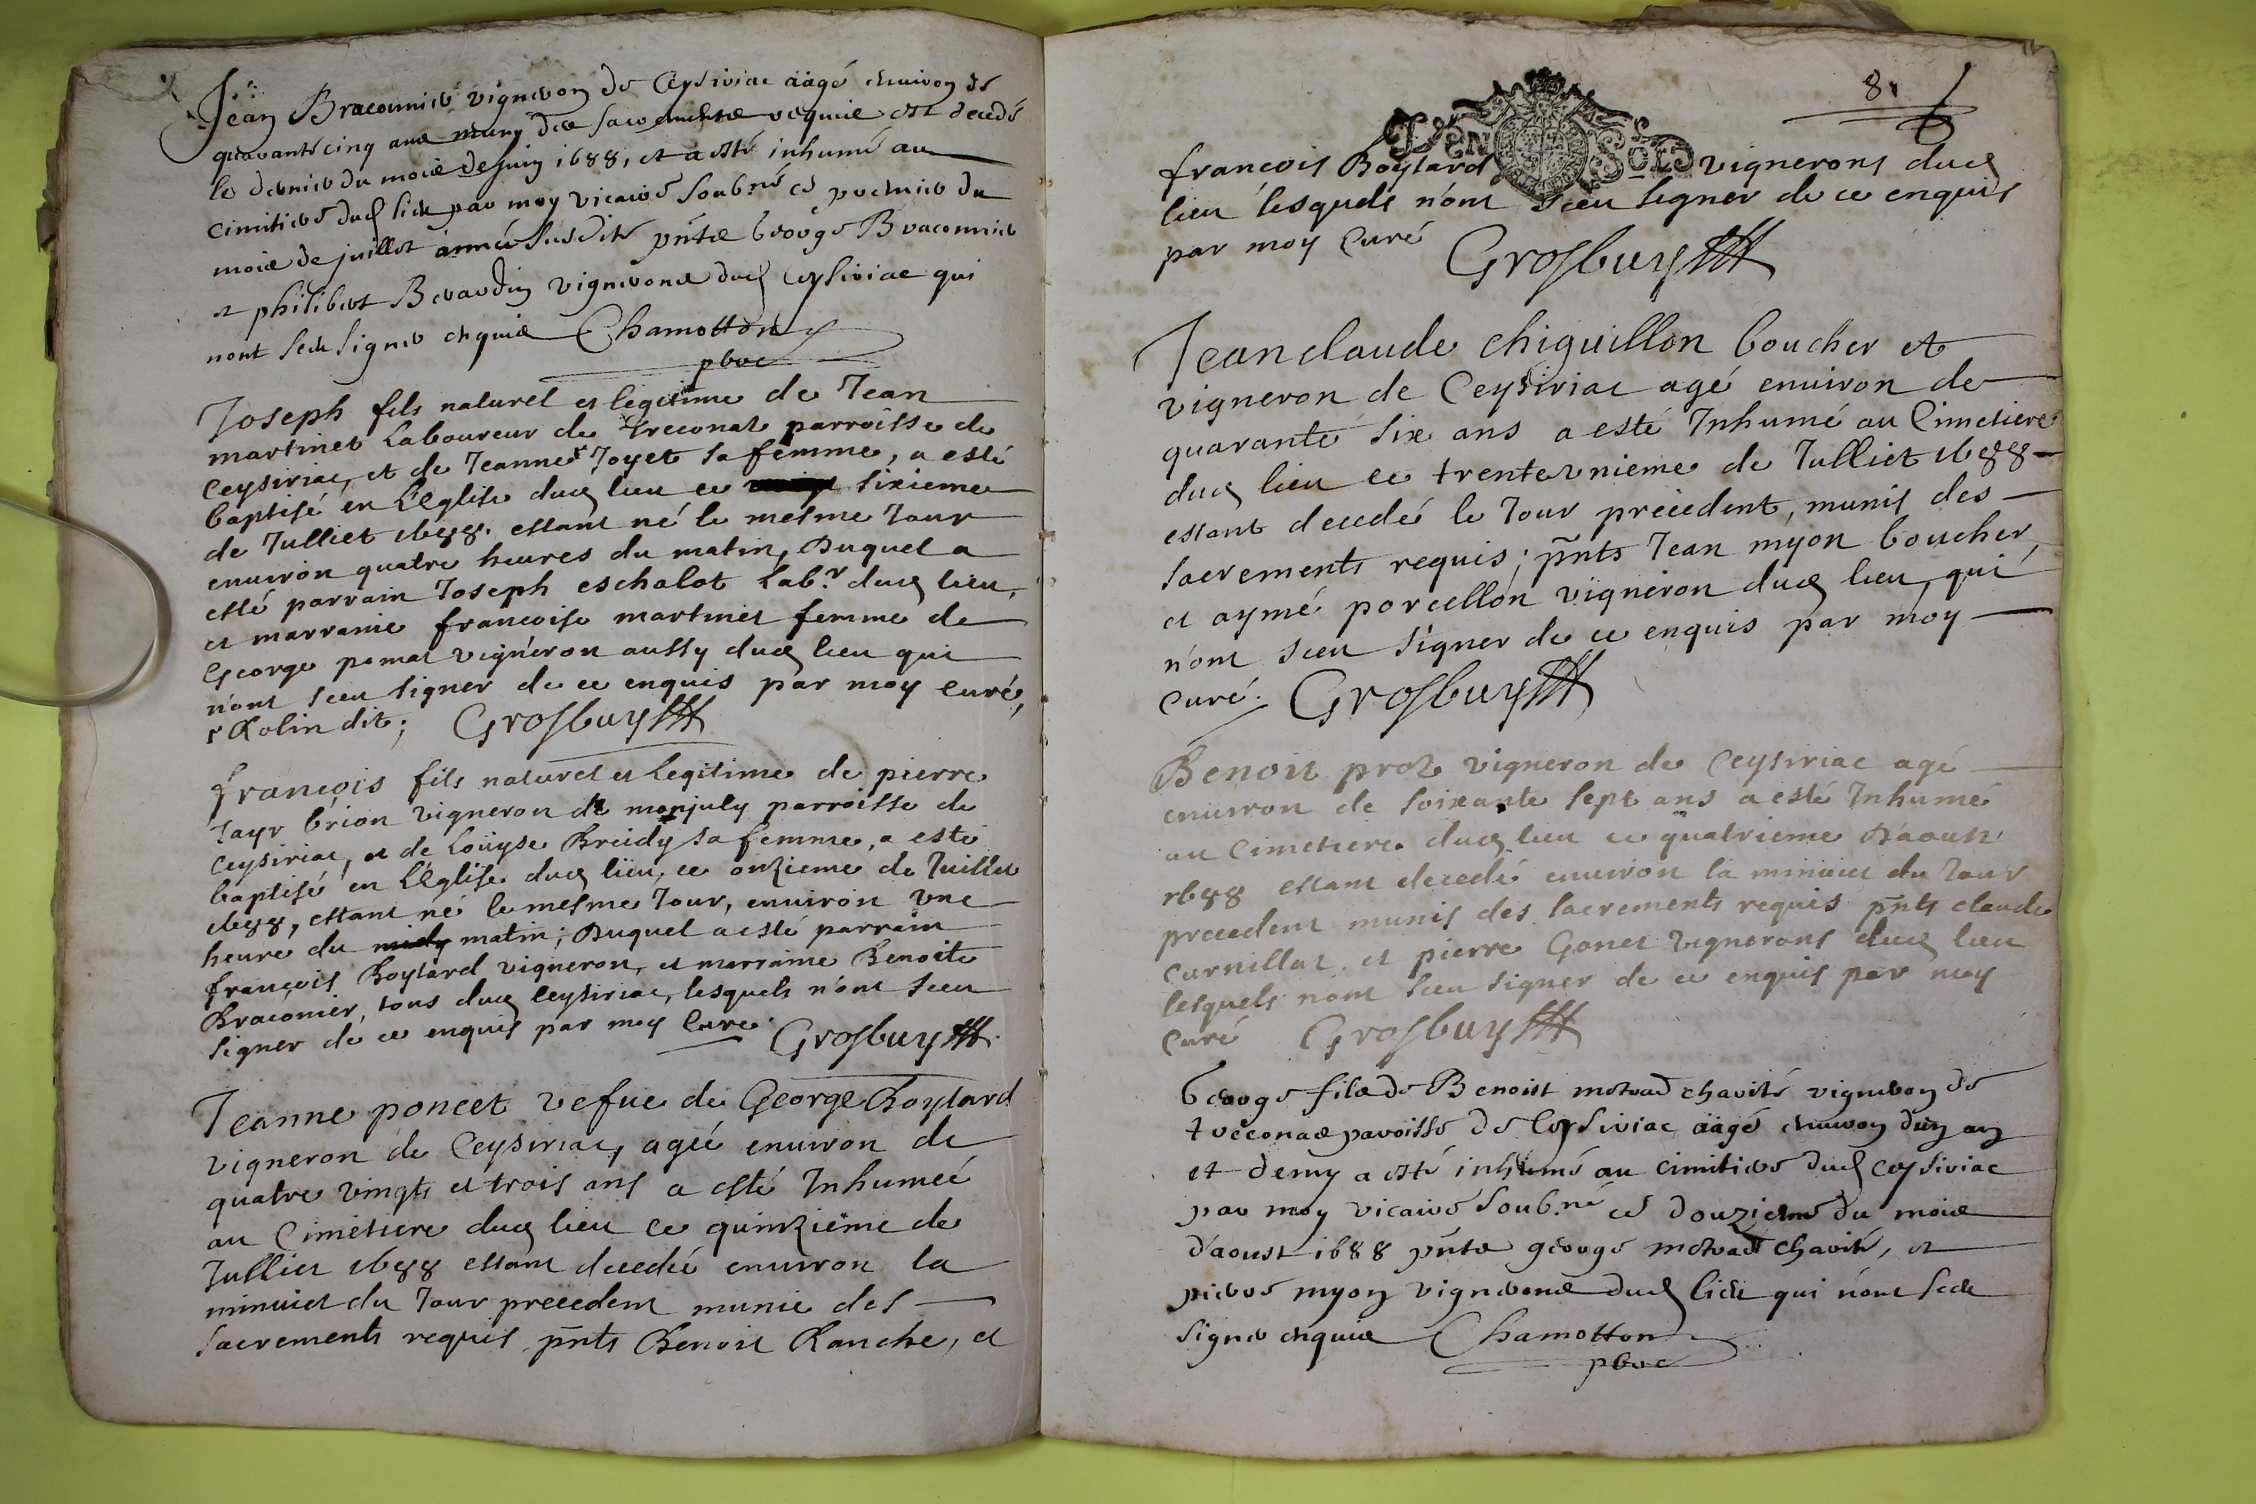 Jean Braconnier vigneron de Ceysiriac aagé environ de
quarante cinq ans muny des sacrements requis est decedé
le dernier du mois de juin 1688, et a esté inhumé au
cimitiere dud lieu par moy vicaire soub.né ce premier du
mois de juillet année susdite pnts George Braconnier
et philibert Berardin vignerons dud Ceysiriac qui
nont sceu signer enquis Chamotton
pbre
Joseph fils naturel et legitime de Jean
martinet Laboureur de treconat parroisse de
Ceysiriac, et de Jeanne Joyet sa femme, a esté
baptisé en L'Eglise dud lieu ce sixieme
de Julliet 1688. estant né le mesme Jour
environ quatre heures du matin, Duquel a
esté parrain Joseph eschalot Lab.r dud lieu,
et marraine francoise martinet femme de
George pomat vigneron aussy dud lieu qui
n'ont sceu signer de ce enquis par moy curé,
Rolin dit; Grosbuy
françois fils naturel et Legitime de pierre
Jayr brion vigneron de monjuly parroisse de
Ceysiriac, et de Loüyse Breidy sa femme, a esté
baptisé en L'Eglise dud lieu, ce onzieme de Juillet
1688, estant né le mesme Jour, environ une
heure du midy matin; Duquel a esté parrain
françois Boytard vigneron, et marraine Benoite
Braconier, tous dud Ceysiriac, lesquels n'ont sceu
signer de ce enquis par moy Curé. Grosbuy
Jeanne poncet vefue de George Boytard
vigneron de Ceysiriac, agée environ de
quatre vingts et trois ans a esté Inhumeé
au Cimetiere dud lieu ce quinzième de
Julliet 1688 estant decedeé environ la
minuiet du Jour precedent munie des
sacrements requis pnts Benoit Ranche, et
8
DEN SOLS
francois Boytard vignerons dud
lieu lesquels n'ont sceu signer de ce enquis
par moy Curé Grosbuy
Jean claude chiguillon boucher et
vigneron de Ceysiriac agé environ de
quarante six ans a esté Inhumé au Cimetiere
dud lieu ce trente unieme de Julliet 1688
estant decedé le Jour precedent, munis des
sacrements requis; pnts Jean myon boucher,
et aymé porcellon vigneron dud lieu, qui
n'ont sceu signer de ce enquis par moy
curé. Grosbuy
Benoit proz vigneron de Ceysiriac agé
environ de soixante sept ans a esté Inhumé
au Cimetiere dud lieu ce quatrieme D'aoust
1688 estant decedé environ la minuiet du Jour
precedent munis des sacrements requis pnts claude
Curnillat et pierre Gonet vignerons dud lieu
lesquels n'ont sceu signer de ce enquis par moy
curé Grosbuy
George fils de Benoist chavité vigneron de
treconas paroisse de Ceysiriac äagé environ d'un an
et demy a esté inhumé au cimitiere dud Ceysiriac
par moy vicaire soub.né ce douzieme du mois
d'aoust 1688 pnts george chavité, et
pierre myon vignerons dud lieu qui n'ont sceu
signer enquis Chamotton
pbre